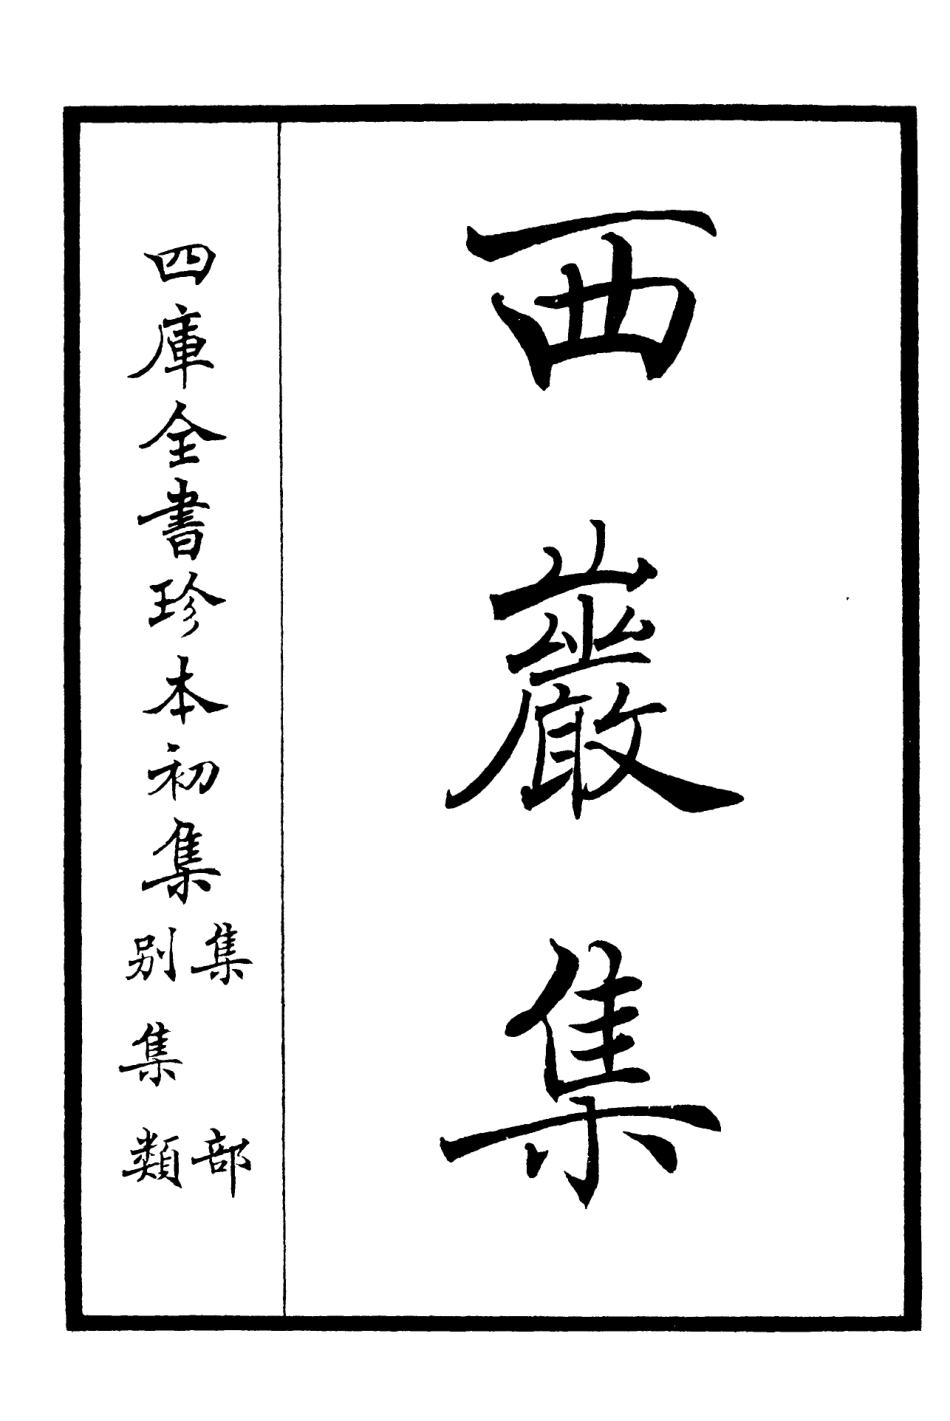 西巖集
四庫全書珍本初集
集部
別集類